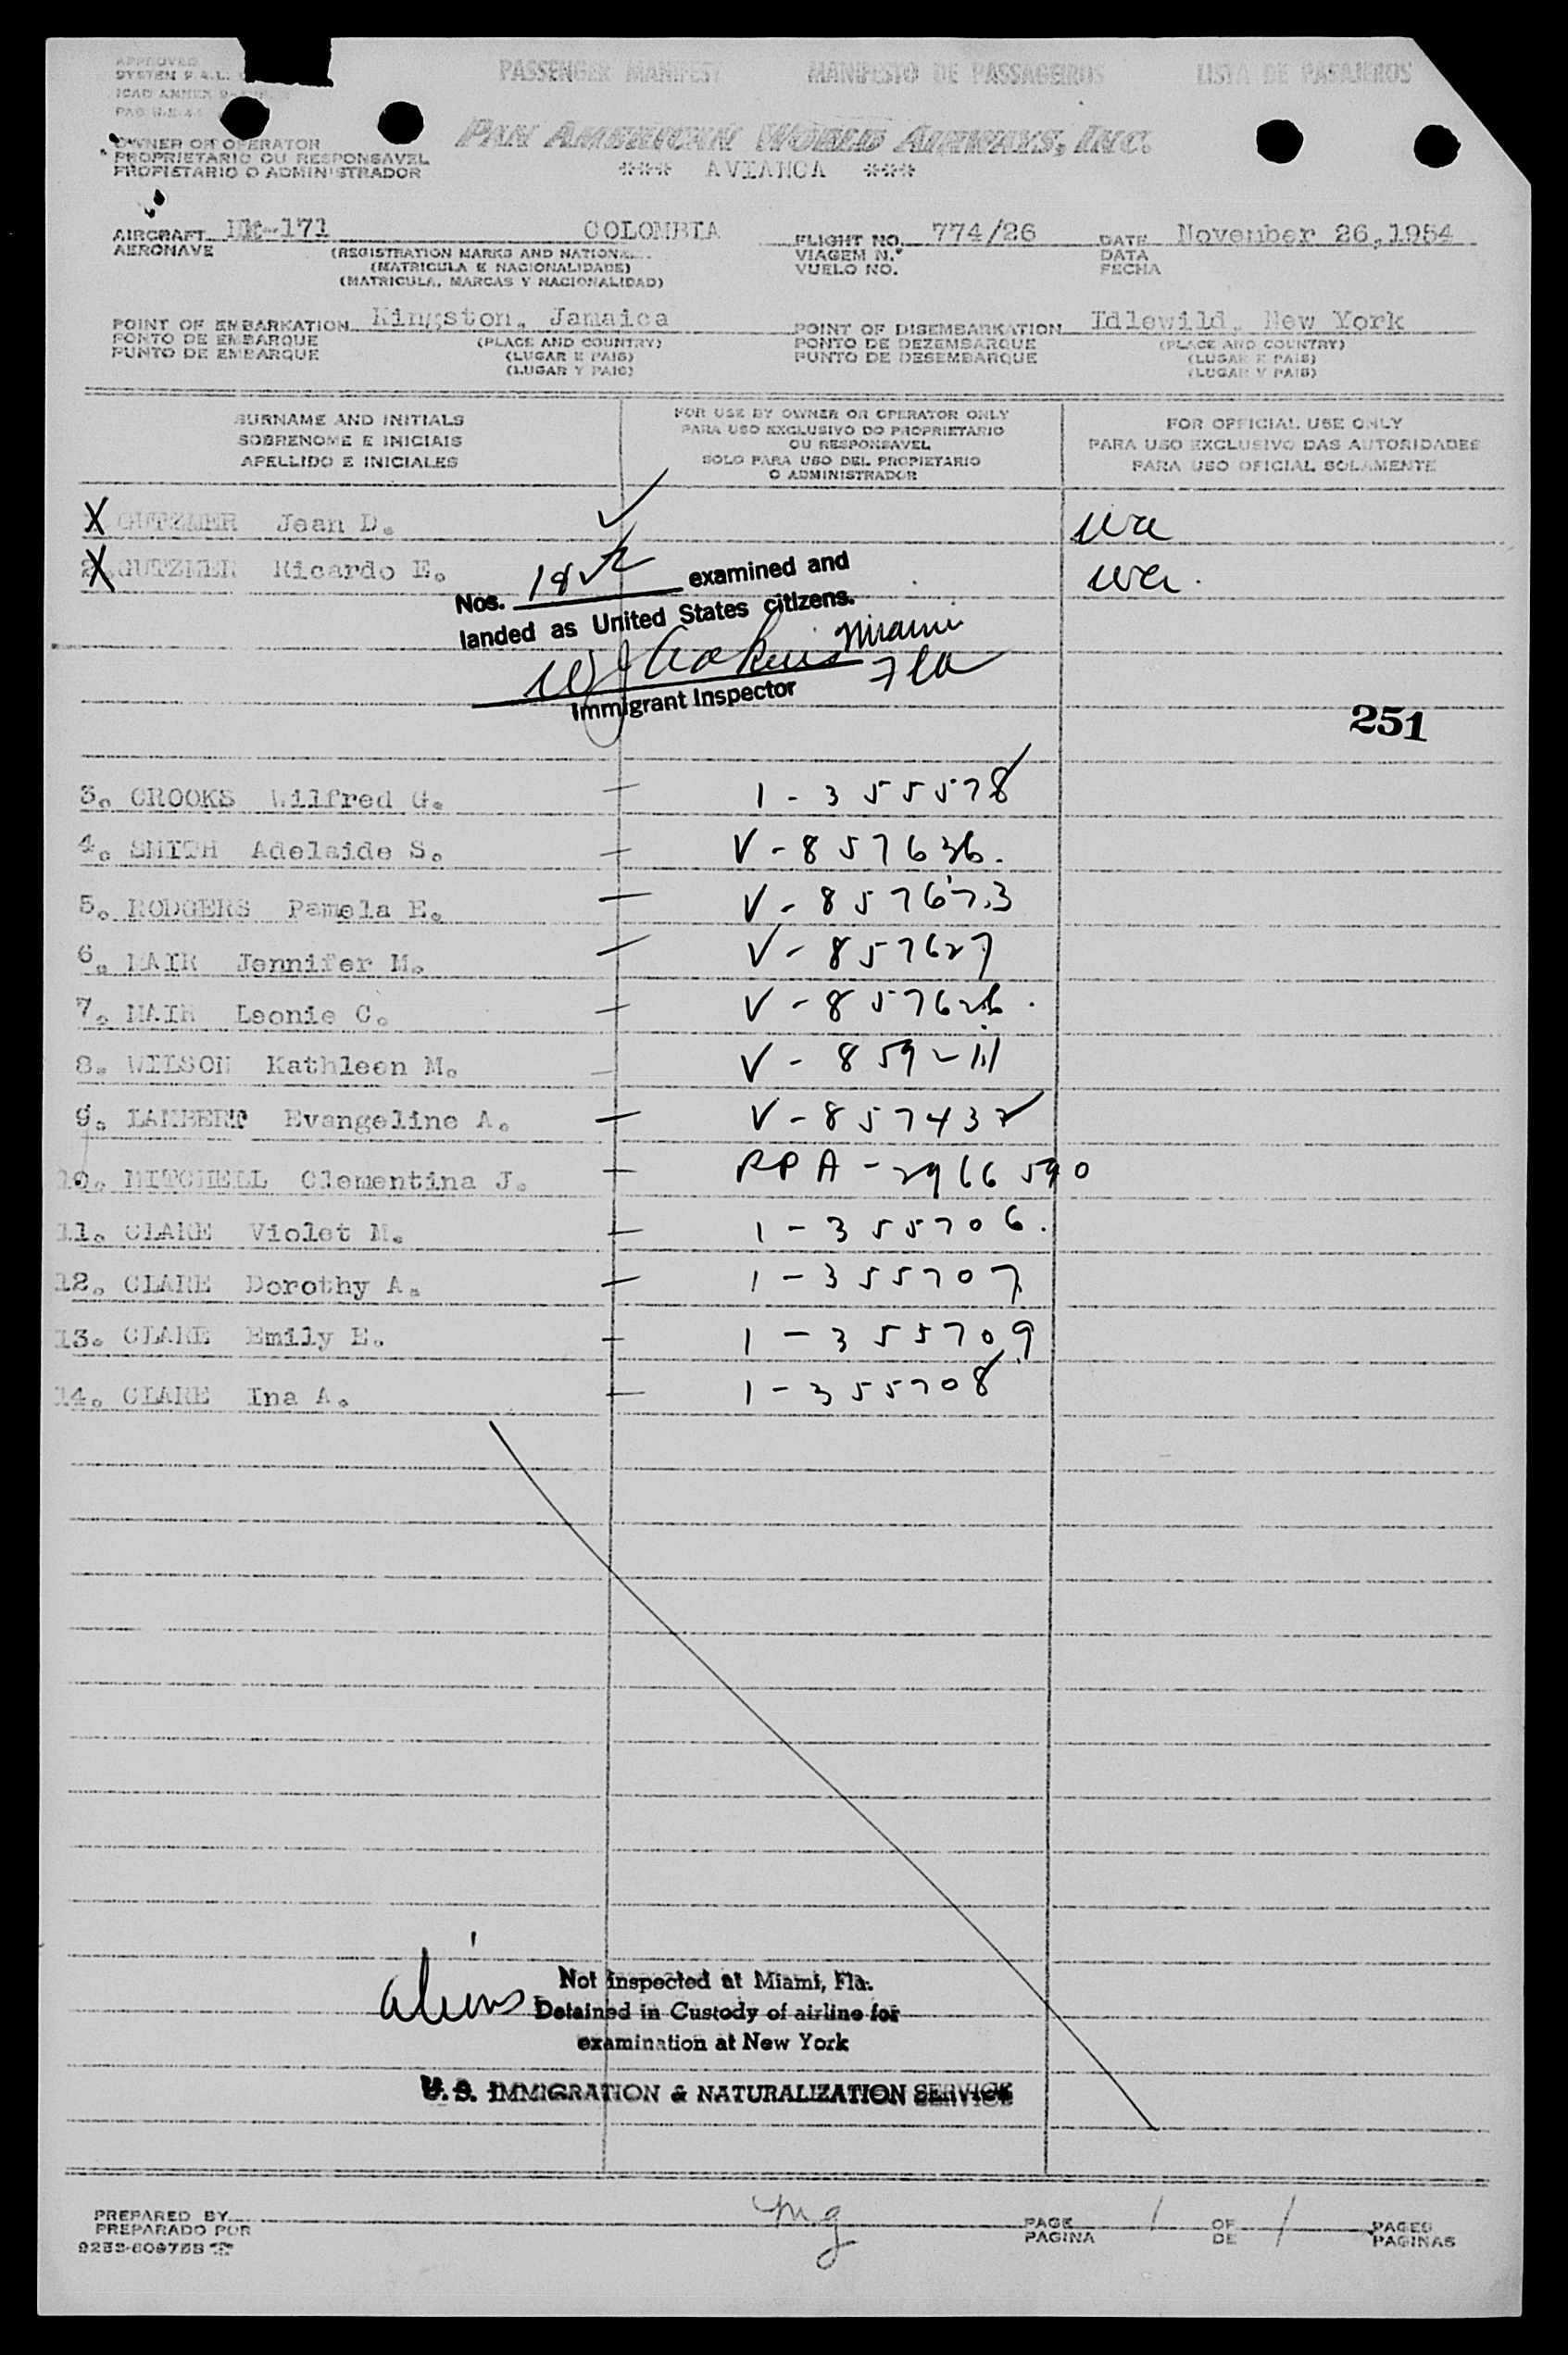 APPROVED
SYSTEM P.A.L.
ICAO ANNEX 9
PASSENGER MANIFEST MANIFESTO DE PASSAGEIROS LISTA DE PASAJEROS
OWNER OR OPERATOR
PROPRIETARIO OU RESPONSAVEL
PROPIETARIO O ADMINISTRADOR
PAN AMERICAN WORLD AIRWAYS, INC.
*** AVIANCA ***
AIRCRAFT HK-171 COLOMBIA FLIGHT NO. 774/26 DATE November 26,1954
AERONAVE (REGISTRATION MARKS AND NATIONAL... VIAGEM N.º DATA
(MATRICULA E NACIONALIDADE) VUELO NO. FECHA
(MATRICULA, MARCAS Y NACIONALIDAD)
POINT OF EMBARKATION Kingston, Jamaica POINT OF DISEMBARKATION Idlewild, New York
PONTO DE EMBARQUE (PLACE AND COUNTRY) PONTO DE DEZEMBARQUE (PLACE AND COUNTRY)
PUNTO DE EMBARQUE (LUGAR E PAIS) PUNTO DE DESEMBARQUE (LUGAR E PAIS)
(LUGAR Y PAIS) (LUGAR Y PAIS)
SURNAME AND INITIALS
SOBRENOME E INICIAIS
APELLIDO E INICIALES
FOR USE BY OWNER OR OPERATOR ONLY
PARA USO EXCLUSIVO DO PROPRIETARIO
OU RESPONSAVEL
SOLO PARA USO DEL PROPIETARIO
O ADMINISTRADOR
FOR OFFICIAL USE ONLY
PARA USO EXCLUSIVO DAS AUTORIDADES
PARA USO OFICIAL SOLAMENTE
X GUTZMER Jean D. ✓
2. X GUTZMER Ricardo E.
Nos. 1 & 2 examined and
landed as United States citizens.
Miami
Fla
Immigrant Inspector
251
3. CROOKS Wilfred G. 1-355578
4. SMITH Adelaide S. V-857636.
5. RODGERS Pamela E. V-857673
6. MAIR Jennifer M. V-857627
7. MAIR Leonie C. V-857626
8. WILSON Kathleen M. V-859211
9. LAMBERT Evangeline A. V-857432
10. MITCHELL Clementina J. RPA-2966590
11. CLARE Violet M. 1-355706.
12. CLARE Dorothy A. 1-355707
13. CLARE Emily E. 1-355709
14. CLARE Ina A. 1-355708
aliens
Not inspected at Miami, Fla.
Detained in Custody of airline for
examination at New York
U. S. IMMIGRATION & NATURALIZATION SERVICE
PREPARED BY mg PAGE 1 OF 1 PAGES
PREPARADO POR PAGINA DE PAGINAS